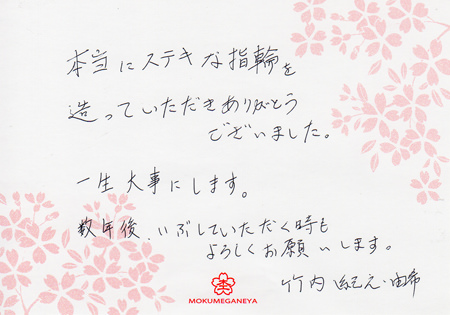 本当にステキな指輪を
造っていただきありがとう
ございました。
一生大事にします。
数年後、いぶしていただく時も
よろしくお願いします。
竹内 ・由希
MOKUMEGANEYA